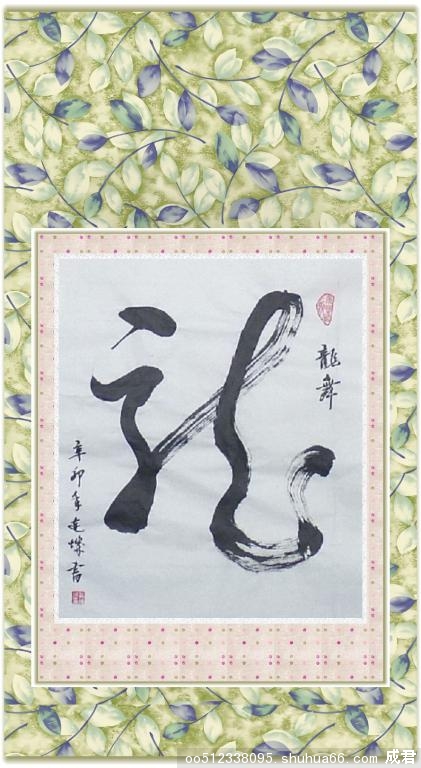 龍舞
龍
辛卯年書
oo512338095 shuhua66 com 成君